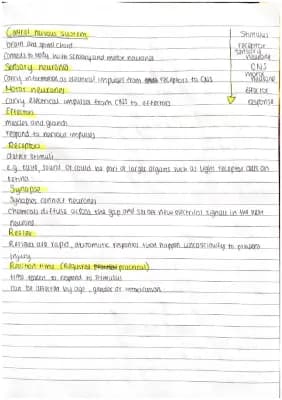 Central nervous system
brain and spinal chord
connects to body with sensory and motor neurons
Sensory neurons
Carry information as electrical impulses from receptors to CNS
Motor neurones
carry electrical impulses from CNS to effectors
Effectors
muscles and glands
respond to nervous impulses
Receptors
detect stimuli
e.g. taste, sound or could be part of larger organs such as light receptor cells on
retina
Synapse
Synapses connect neurones
Chemicals diffuse across the gap and start new electrical signals in the next
neurone
Reflex
Reflexes are rapid, automatic responses that happen unconsciously to prevent
injury
Reaction time (Required practical)
time taken to respond to stimulus
can be affected by age, gender or
Stimulus
receptor
sensory
neurone
CNS
motor
neurone
effector
response